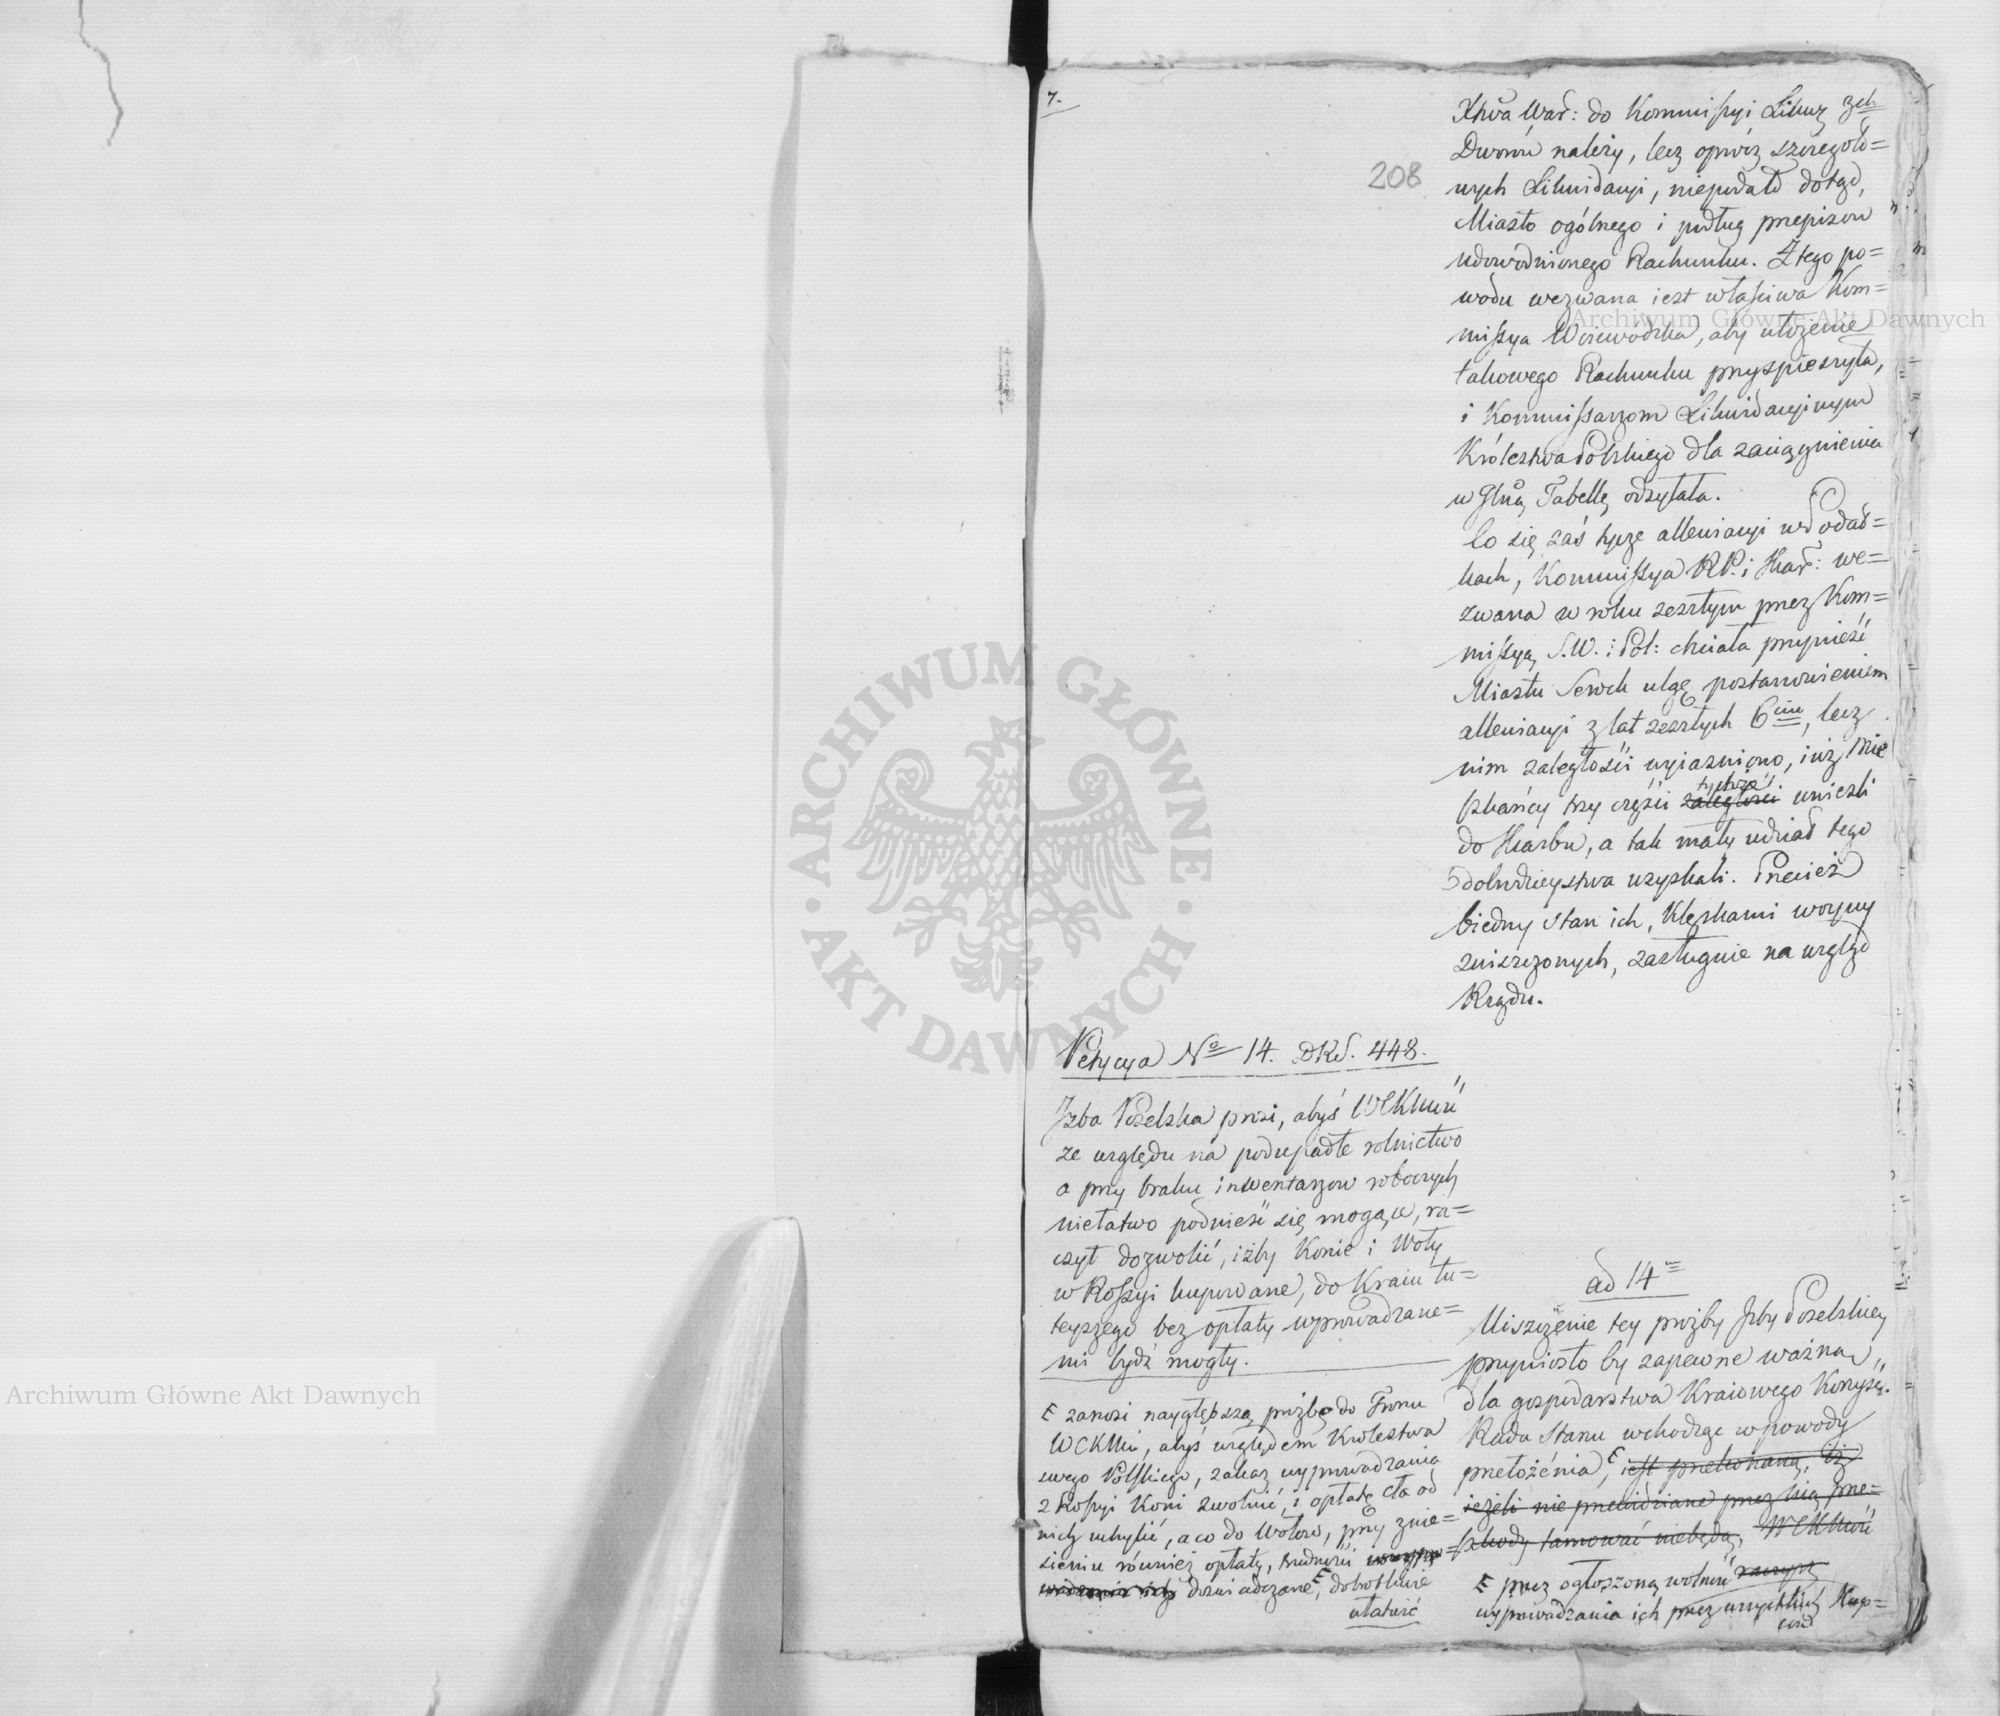 7.
208
Xtwa War: do Kommissyi Likwz 3ch
Dworów należy, lecz oprócz szczegól=
nych Likwidacyi, niepodało dotąd,
Miasto ogólnego i podług przepisow
udowodnionego Rachunku. Z tego po=
wodu wezwana iest właściwa Kom=
missya Woiewódzka, aby ułożenie
takowego Rachunku przyspieszyła,
i Kommissarzom Likwidacyinym
Królestwa Polskiego dla zaciągnienia
w Głną Tabellę odsyłała.
Co się zaś tycze allewiacyi w Podat=
kach, Kommissya RP. i Skar: we=
zwana w roku zeszłym przez Kom=
missyą S.W. i Pol: chciała przynieść
Miastu Serock ulgę postanowieniem
allewiacyi z lat zeszłych 6ciu, lecz
nim zaległości wyiaśniono, iuż Mie
szkańcy trzy części
tychże
zaległości wnieśli
do Skarbu, a tak mały udział tego
dobrodzieystwa uzyskali. Przecież
biedny stan ich, Klęskami woyny
zniszczonych, zasługuie na wzgląd
Rządu.
Petycya No 14. DKS. 448.
Izba Poselska prosi, abyś WCKMość
ze względu na podupadłe rolnictwo
a przy braku inwentarzow roboczych
niełatwo podnieść się mogące, ra=
czył dozwolić, iżby Konie i Woły
w Rossyi kupowane, do Kraiu tu=
teyszego bez opłaty wprowadzane=
mi bydź mogły.
E zanosi naygłębszą prożbę do Tronu
WCKMci, abyś względem Krolestwa
swego Polskiego, zakaz wyprowadzania
z Rossyi Koni zwolnić, i opłatę cła od
nich uchylić, a co do Wołow, przy znie=
sieniu równiez opłaty, trudności
doswiadczane E, dobrotliwie
ułatwić
ad 14m
Uiszczenie tey prożby Izby Poselskiey
przyniosło by zapewne ważną
dla gospodarstwa Kraiowego Korzyść.
Rada Stanu wchodząc w powody
przełożenia, E iest przekonaną, iż
ieżeli nie przewidziane przez nią prze=
szkody tamować niebędą, WCKMość
E przez ogłoszoną wolność raczysz
wyprowadzania ich przez wszystkich Kup=
cow